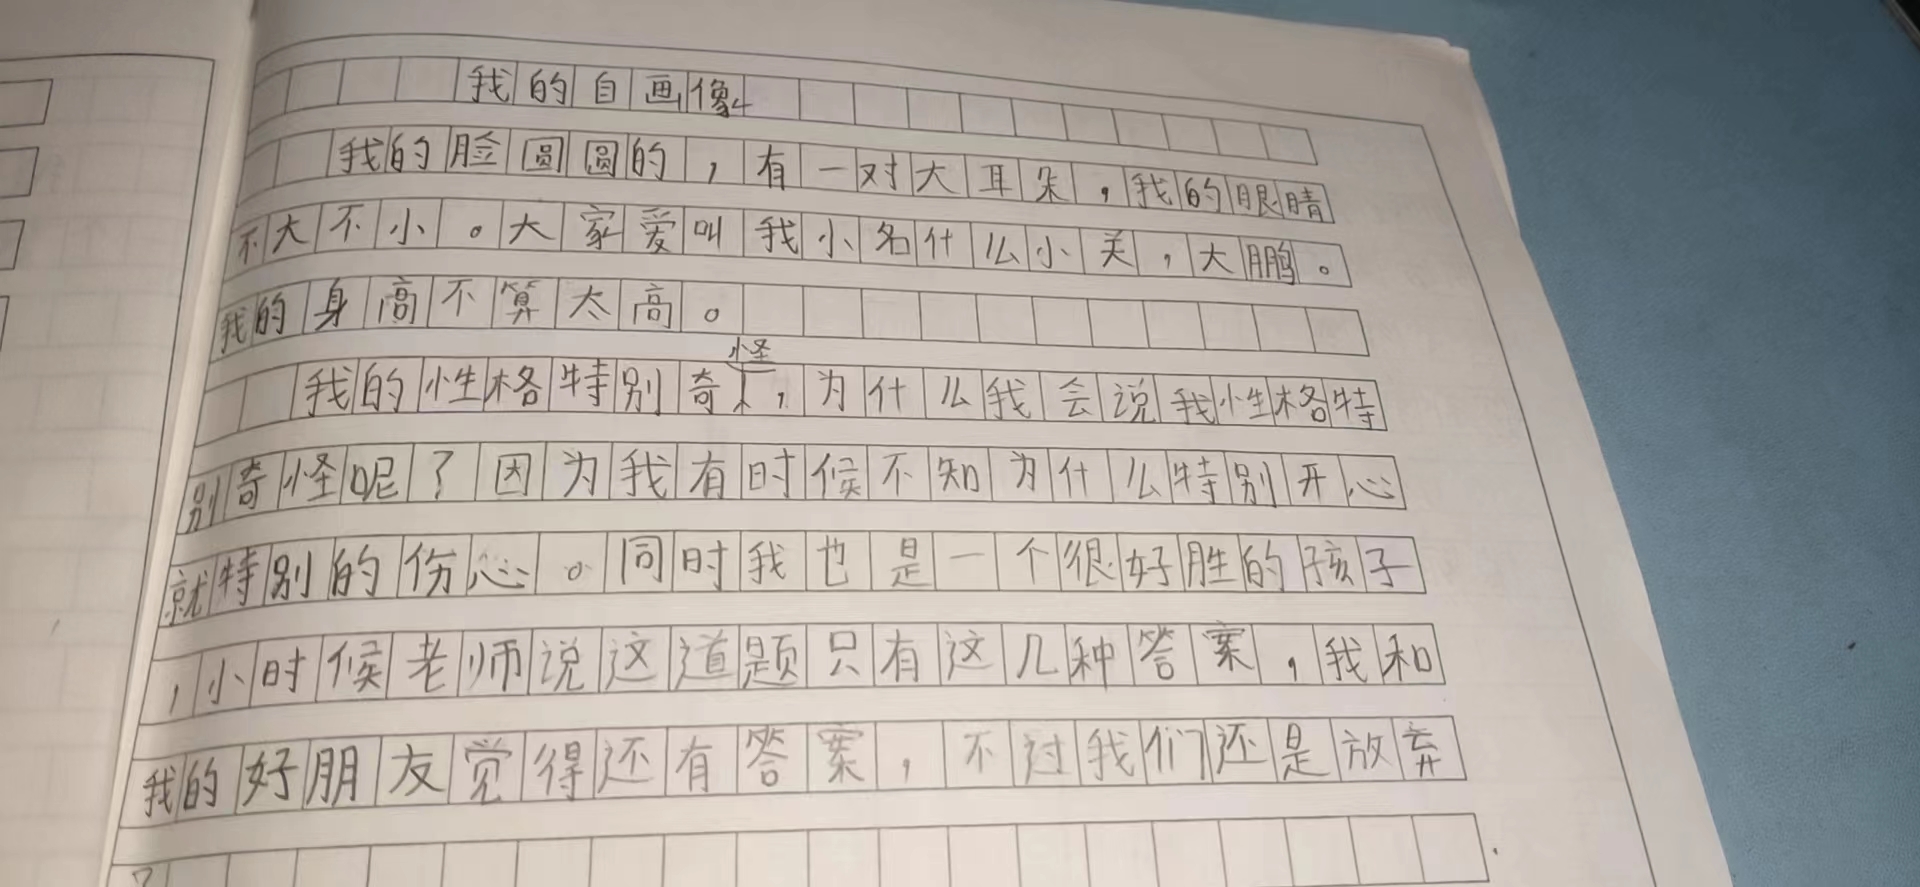 我的自画像
我的脸圆圆的，有一对大耳朵，我的眼睛
不大不小。大家爱叫我小名什么小关，大鹏。
我的身高不算太高。
我的性格特别奇怪，为什么我会说我性格特
别奇怪呢？因为我有时候不知为什么特别开心
就特别的伤心。同时我也是一个很好胜的孩子
，小时候老师说这道题只有这几种答案，我和
我的好朋友觉得还有答案，不过我们还是放弃